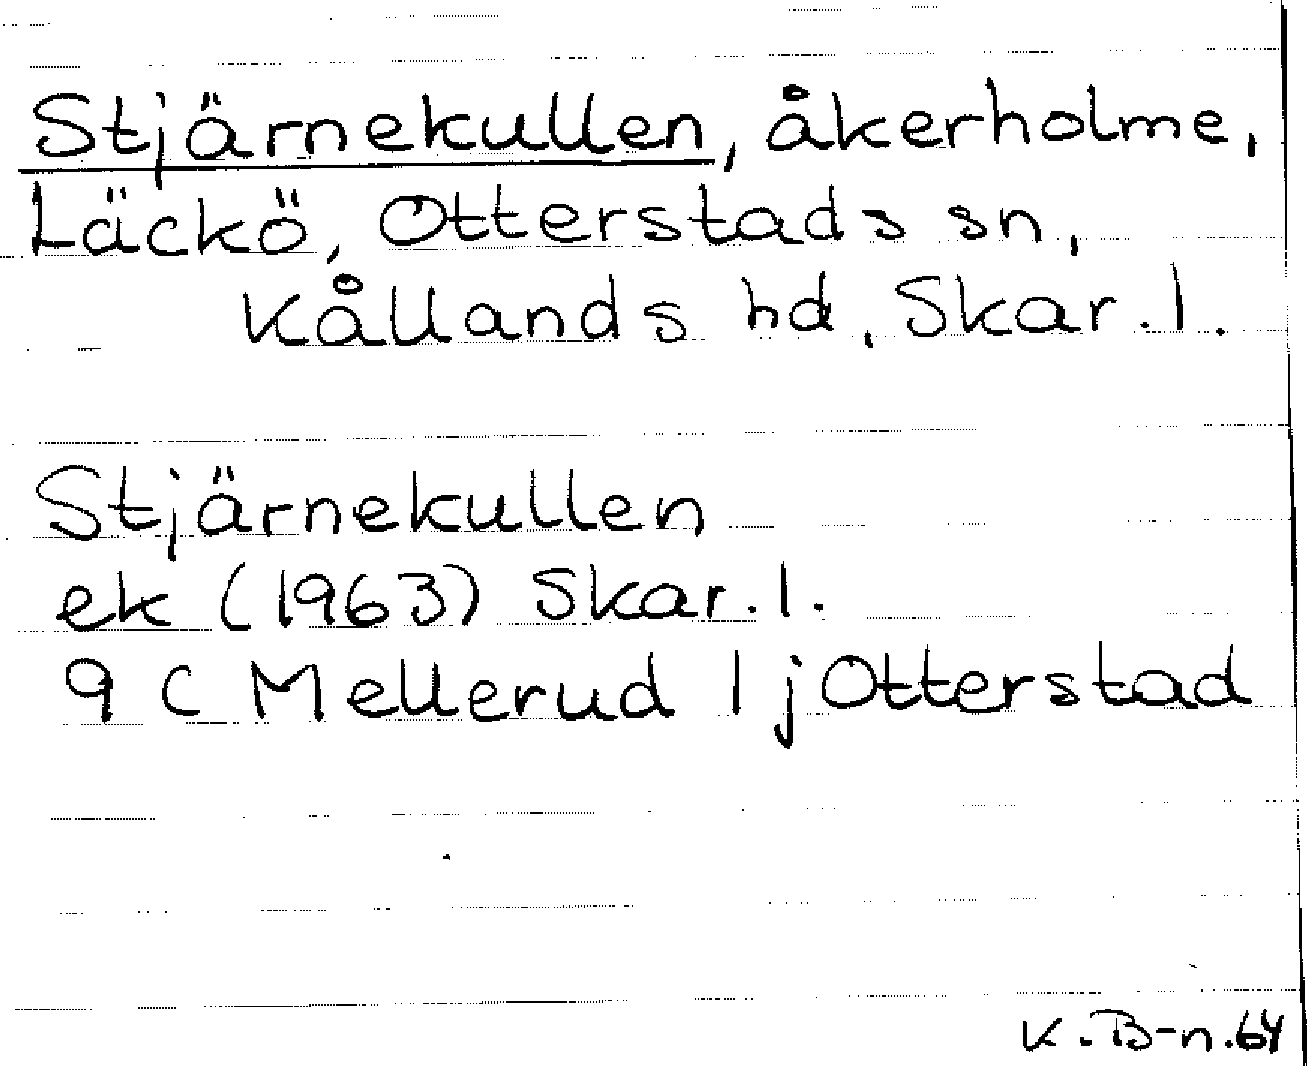 Stjärnekullen, åkerholme,
Läckö, Otterstads sn,
Kållands hd, Skar. l.
Stjärnekullen
ek (1963) Skar. l.
9 C Mellerud 1 j Otterstad
K. B-n. 64